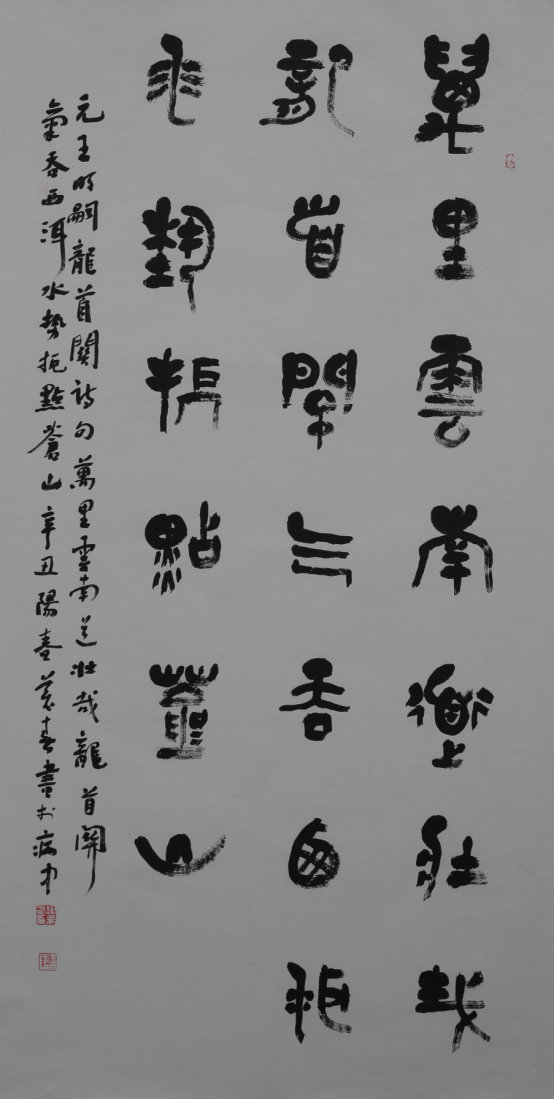 萬里雲南道壯哉
龍首關气吞西洱
水勢扼點蒼山
元王明嗣龍首關詩句萬里雲南道壯哉龍首關
氣吞西洱水勢扼點蒼山辛丑陽春書於病中